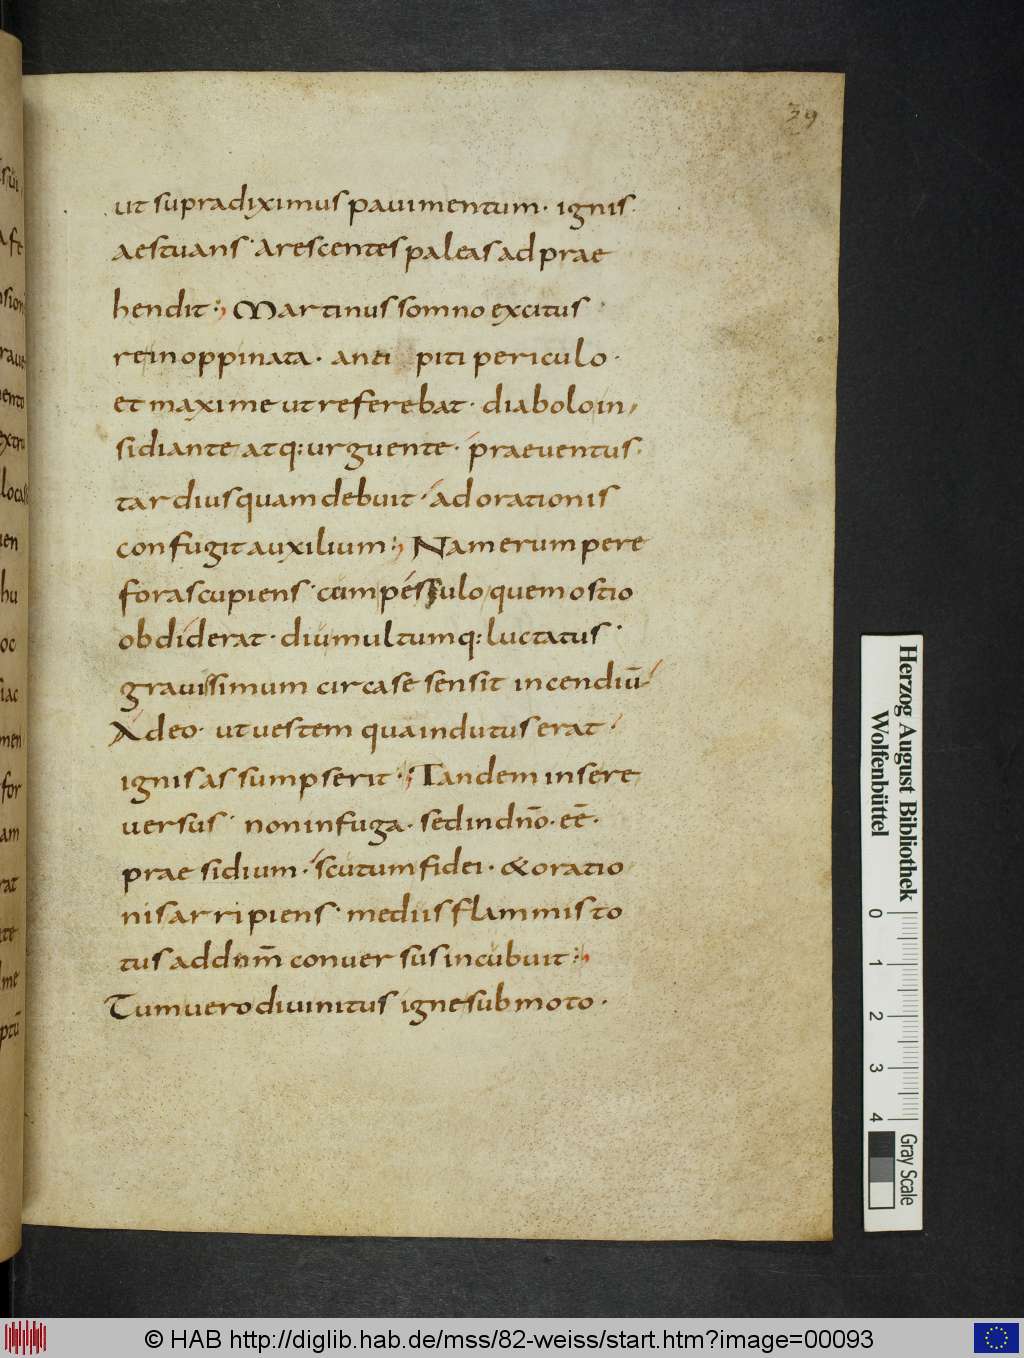 39
ut supradiximus pauimentum · ignis
aestuans · arescentes paleas adprae
hendit :, Martinus somno excitus
re inoppinata · anci piti periculo ·
et maxime ut referebat · diabolo in,
sidiante atq: urguente · praeuentus ·
tardius quam debuit · ad orationis
confugit auxilium :, Nam erumpere
foras cupiens · cum pessulo quem ostio
obdiderat · diu multumq: luctatus ·
grauissimum circa se sensit incendiū
Adeo · ut uestem qua indutus erat ·
ignis assumpserit :, Tandem in se re
uersus · non in fuga · sed in dn̄o · eē ·
prae sidium · scutum fidei · & oratio
nis arripiens · medius flammis to
tus ad dnm̄ conuersus incubuit :,
Tum uero diuinitus igne submoto ·
sui
aft
sion
raue
ento
extru
locas
uen
hu
oc
siac
men
for
am
rat
te
me
ptū
Herzog August Bibliothek
Wolfenbüttel
0 1 2 3 4
Gray Scale
© HAB http://diglib.hab.de/mss/82-weiss/start.htm?image=00093